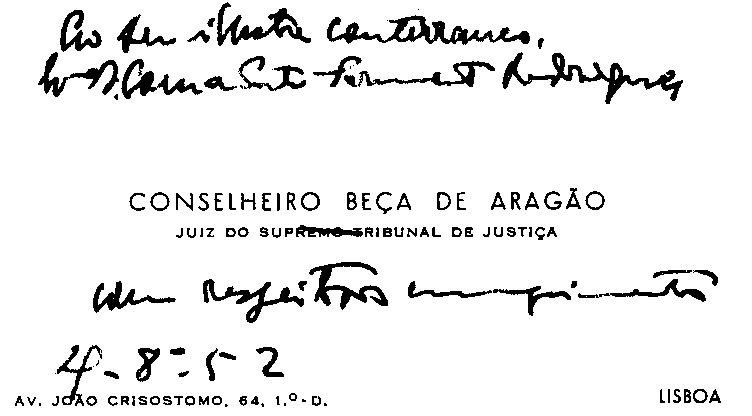 Ao seu illustre conterraneo,
Rodrigues
CONSELHEIRO BEÇA DE ARAGÃO
JUIZ DO SUPREMO TRIBUNAL DE JUSTIÇA
com respeitosos cumprimentos
4-8-52
AV. JOÃO CRISOSTOMO, 64, 1.º-D.
LISBOA